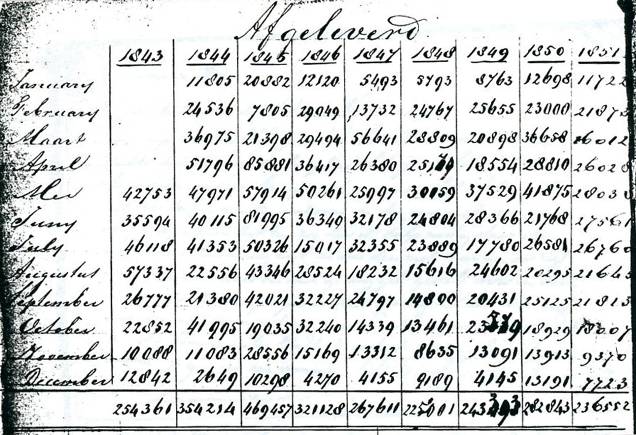 Afgeleverd
1843 1844 1845 1846 1847 1848 1849 1850 1851
January 11805 20882 12120 5493 5793 8763 12698 11722
February 24536 7805 29049 13732 24767 25655 23000 21873
Maart 36975 21398 29494 56641 28809 20898 36658 26012
April 51796 85881 36417 26380 18554 28810 26028
Mei 42753 47971 57914 50261 25997 30059 37529 41875 28038
Juny 35594 40115 81995 36340 32178 24804 28366 21768 27561
July 46118 41353 50326 15017 32355 23889 17780 26581 26760
Augustus 57337 22556 43346 28524 18232 15616 24602 20295 21645
September 26777 21380 42021 32227 24797 14800 20431 25125 21815
October 22852 41995 19035 32240 14339 13461 18929 18007
November 10088 11083 28556 15169 13312 8635 13091 13913 9370
December 12842 2649 10298 4270 4155 9189 4145 13191 7723
254361 354214 469457 321128 267611 225001 282843 236552